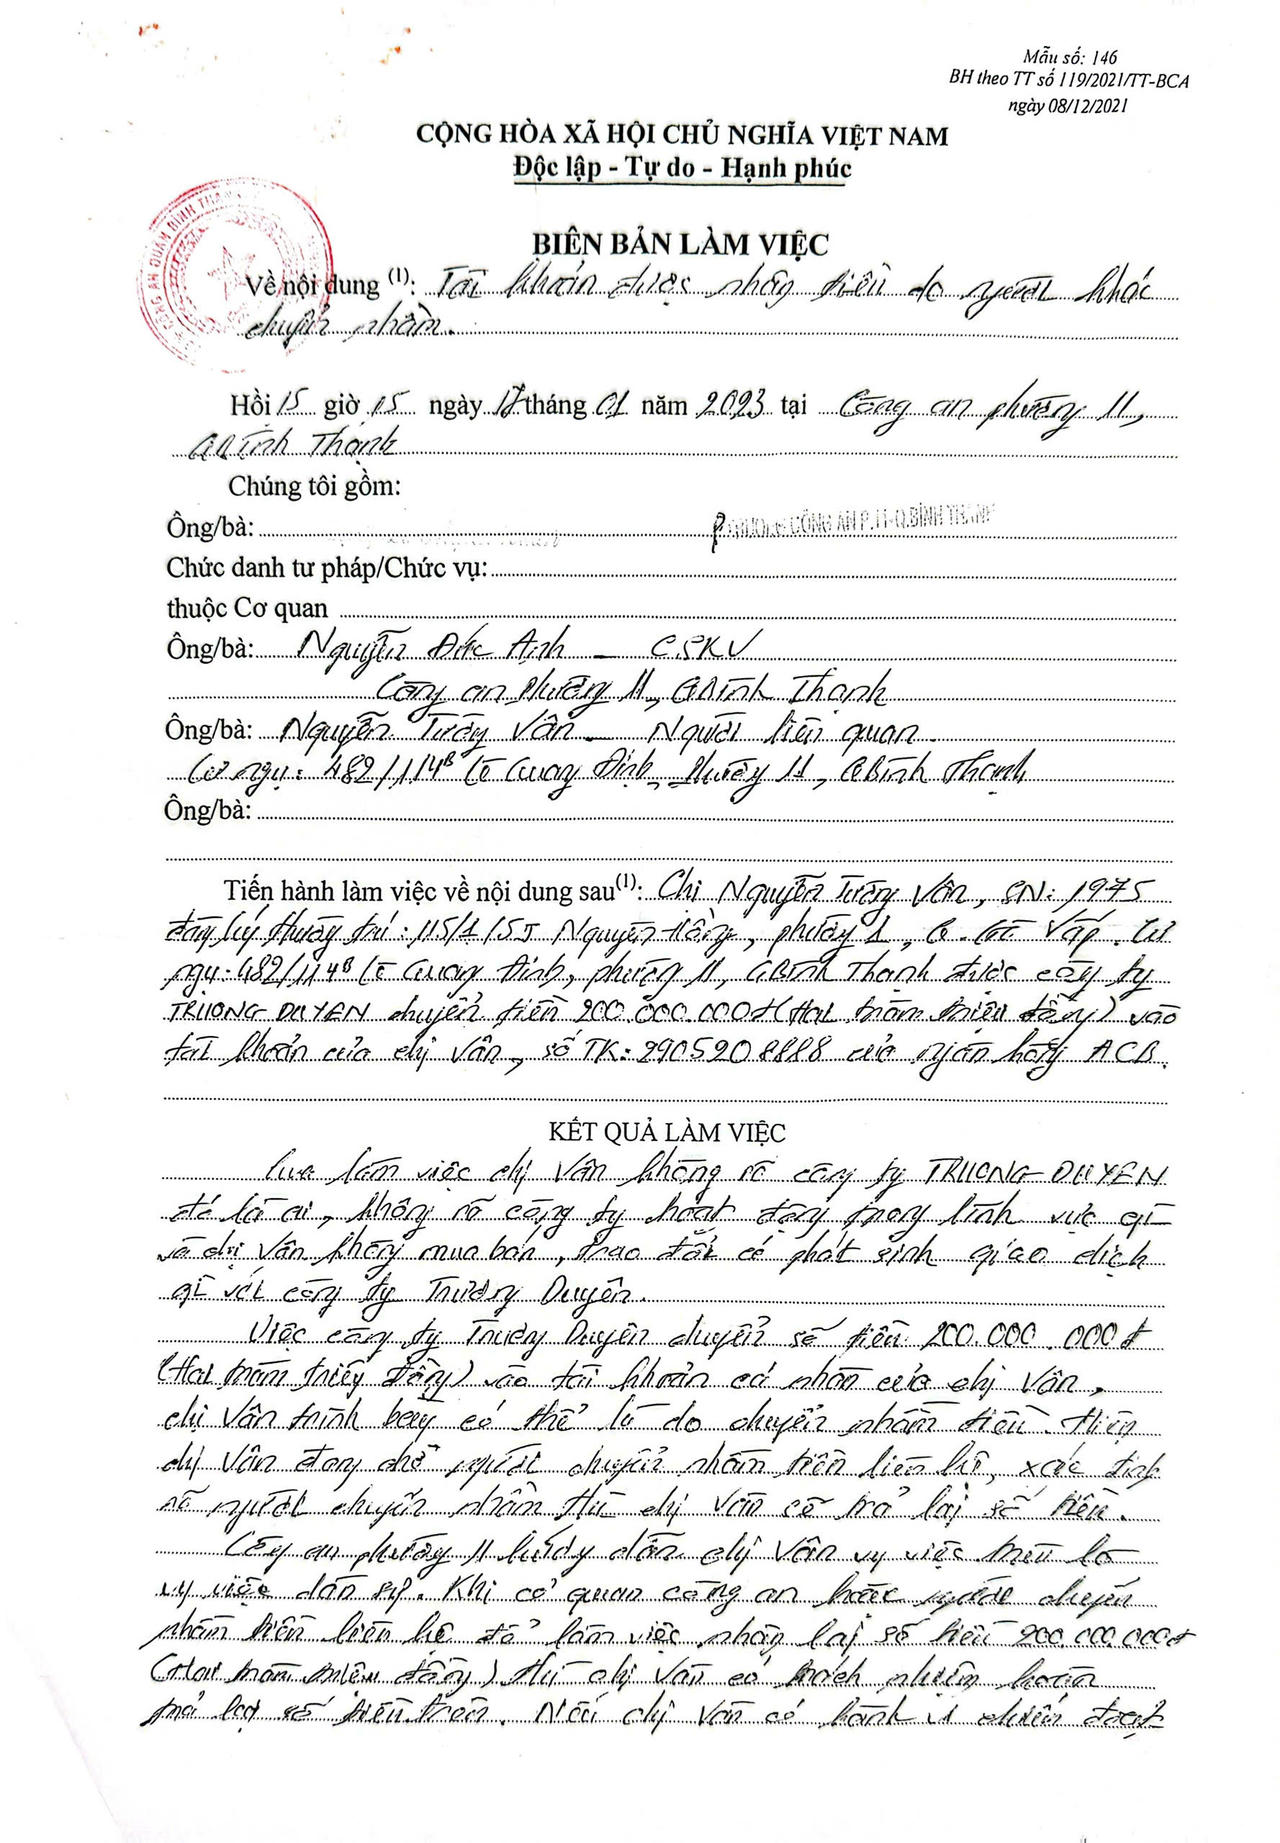 Mẫu số: 146
BH theo TT số 119/2021/TT-BCA
ngày 08/12/2021
CỘNG HÒA XÃ HỘI CHỦ NGHĨA VIỆT NAM
Độc lập - Tự do - Hạnh phúc
BIÊN BẢN LÀM VIỆC
Về nội dung (1): Tài khoản được nhận tiền do người khác
chuyển nhầm.
Hồi 15 giờ 15 ngày 17 tháng 01 năm 2023 tại Công an phường 11,
Q Bình Thạnh
Chúng tôi gồm:
Ông/bà: CÔNG AN P.11-Q.BÌNH THẠNH
Chức danh tư pháp/Chức vụ:
thuộc Cơ quan
Ông/bà: Nguyễn Đức Anh – CSKV
Công an phường 11, Q Bình Thạnh
Ông/bà: Nguyễn Tường Vân – Người liên quan
Cư ngụ: 482/1/14B Lê Quang Định, phường 11, Q Bình Thạnh
Ông/bà:
Tiến hành làm việc về nội dung sau(1): Chị Nguyễn Tường Vân, SN: 1975
đăng ký thường trú: 115/1/5J Nguyên Hồng, phường 1, Q. Gò Vấp. Cư
ngụ: 482/1/14B Lê Quang Định, phường 11, Q Bình Thạnh được công ty
TRUONG DUYEN chuyển tiền 200.000.000đ (Hai trăm triệu đồng) vào
tài khoản của chị Vân, số TK: 2905208888 của ngân hàng ACB.
KẾT QUẢ LÀM VIỆC
Qua làm việc chị Vân không rõ công ty TRUONG DUYEN
đó là ai, không rõ công ty hoạt động trong lĩnh vực gì
và chị Vân không mua bán, trao đổi có phát sinh giao dịch
gì với công ty Trương Duyên.
Việc công ty Trương Duyên chuyển số tiền 200.000.000đ
(Hai trăm triệu đồng) vào tài khoản cá nhân của chị Vân,
chị Vân trình bày có thể là do chuyển nhầm tiền. Hiện
chị Vân đang chờ người chuyển nhầm tiền liên hệ, xác định
rõ người chuyển nhầm thì chị Vân sẽ trả lại số tiền.
Công an phường 11 hướng dẫn chị Vân vụ việc trên là
vụ việc dân sự. Khi cơ quan công an hoặc người chuyển
nhầm tiền liên hệ để làm việc nhận lại số tiền 200.000.000đ
(Hai trăm triệu đồng) thì chị Vân có trách nhiệm hoàn
trả lại số tiền trên. Nếu chị Vân có hành vi chiếm đoạt